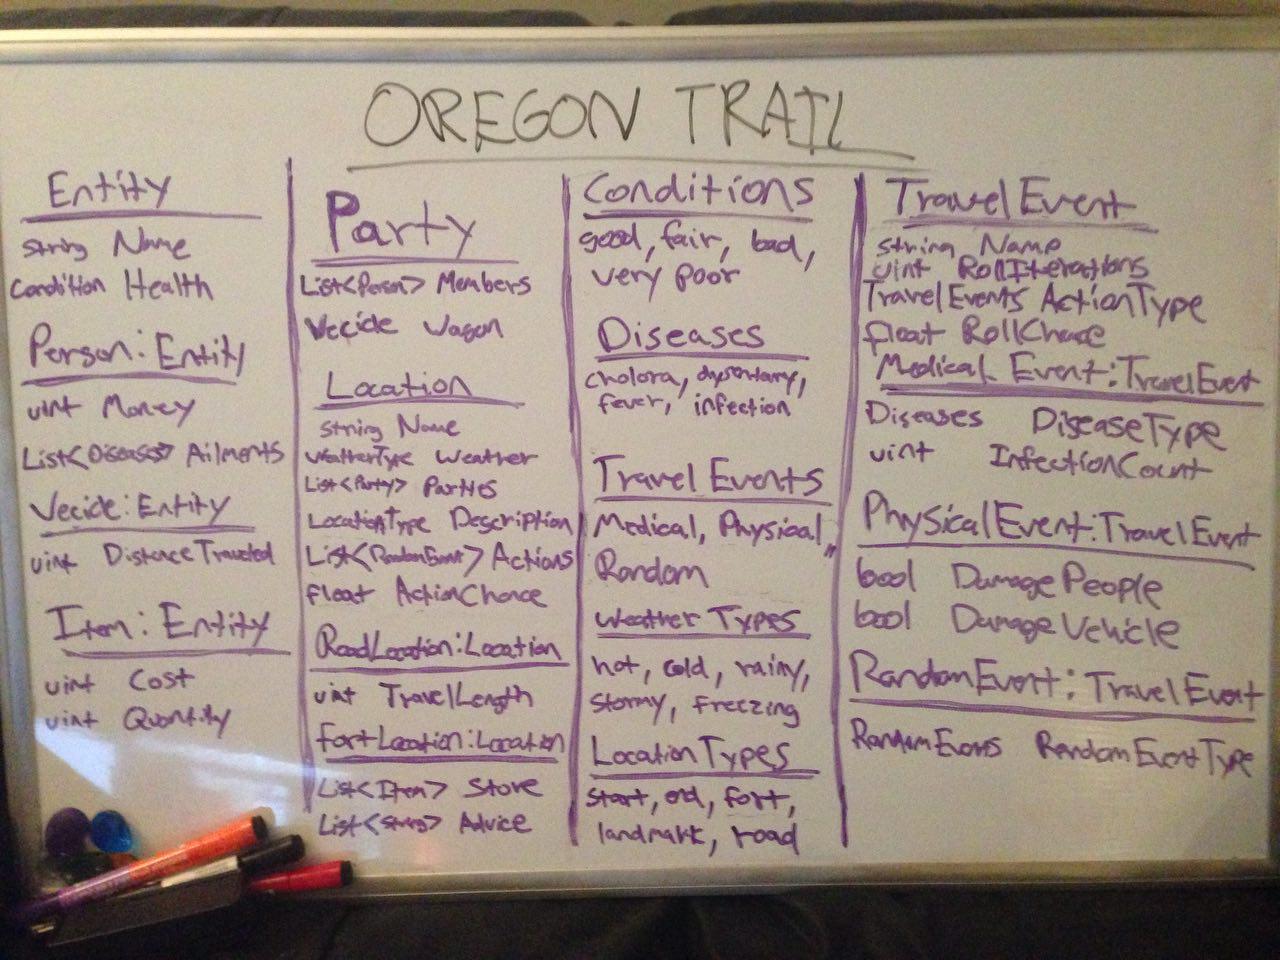 OREGON TRAIL
Entity
string Name
Condition Health
Person: Entity
uint Money
List<Diseases> Ailments
Vecicle: Entity
uint DistanceTraveled
Item: Entity
uint Cost
uint Quantity
Party
List<Person> Members
Vecicle Wagon
Location
string Name
WeatherType Weather
List<Party> Parties
LocationType Description
List<RandomEvent> Actions
float ActionChance
RoadLocation:Location
uint TravelLength
FortLocation:Location
List<Item> Store
List<string> Advice
Conditions
good, fair, bad,
very poor
Diseases
cholora, dysentary,
fever, infection
Travel Events
Medical, Physical,
Random
Weather Types
hot, cold, rainy,
stormy, freezing
Location Types
start, end, fort,
landmark, road
TravelEvent
string Name
uint RollIterations
TravelEvents ActionType
float RollChace
Medical Event:TravelEvent
Diseases DiseaseType
uint InfectionCount
PhysicalEvent:TravelEvent
bool DamagePeople
bool DamageVehicle
RandomEvent: TravelEvent
RandomEvents RandomEventType